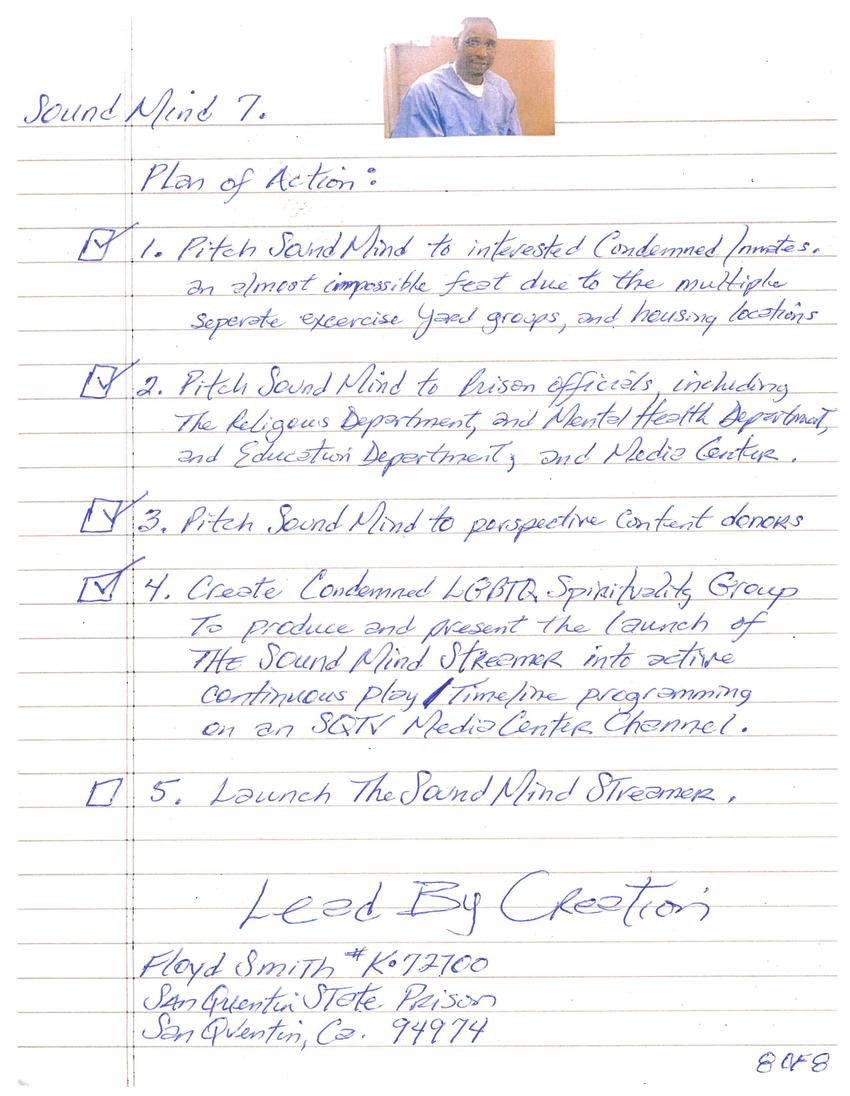 Sound Mind 7.
Plan of Action:
1. Pitch Sound Mind to interested Condemned Inmates.
an almost impossible feat due to the multiple
seperate excercise yard groups, and housing locations
2. Pitch Sound Mind to Prison officials, including
The Religous Department, and Mental Health Department,
and Education Department, and Media Center.
3. Pitch Sound Mind to perspective content donors
4. Create Condemned LGBTQ Spirituality Group
To produce and present the launch of
THE Sound Mind STREAMER into active
continuous play/Timeline programming
on an SQTV Media Center Channel.
5. Launch The Sound Mind STreamer.
Lead By Creation
Floyd Smith #K•72700
San Quentin State Prison
San Quentin, Ca. 94974
8 OF 8